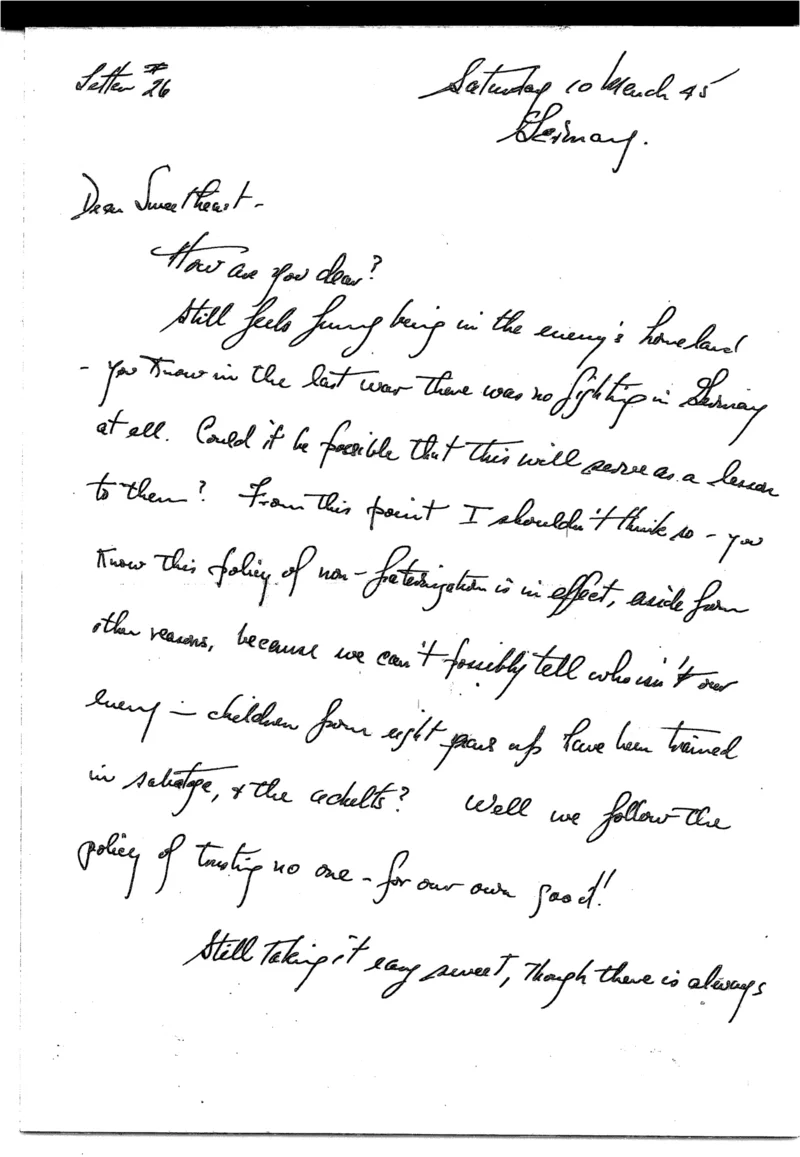 Letter #26
Saturday 10 March 45
Germany.
Dear Sweetheart -
How are you dear?
Still feels funny being in the enemy's homeland
- you know in the last war there was no fighting in Germany
at all. Could it be possible that this will serve as a lesson
to them? From this point I shouldn't think so - you
know this policy of non-fraternization is in effect, aside from
other reasons, because we can't possibly tell who isn't our
enemy - children from eight years up have been trained
in sabotage, & the adults? Well we follow the
policy of trusting no one - for our own good!
Still taking it easy sweet, though there is always